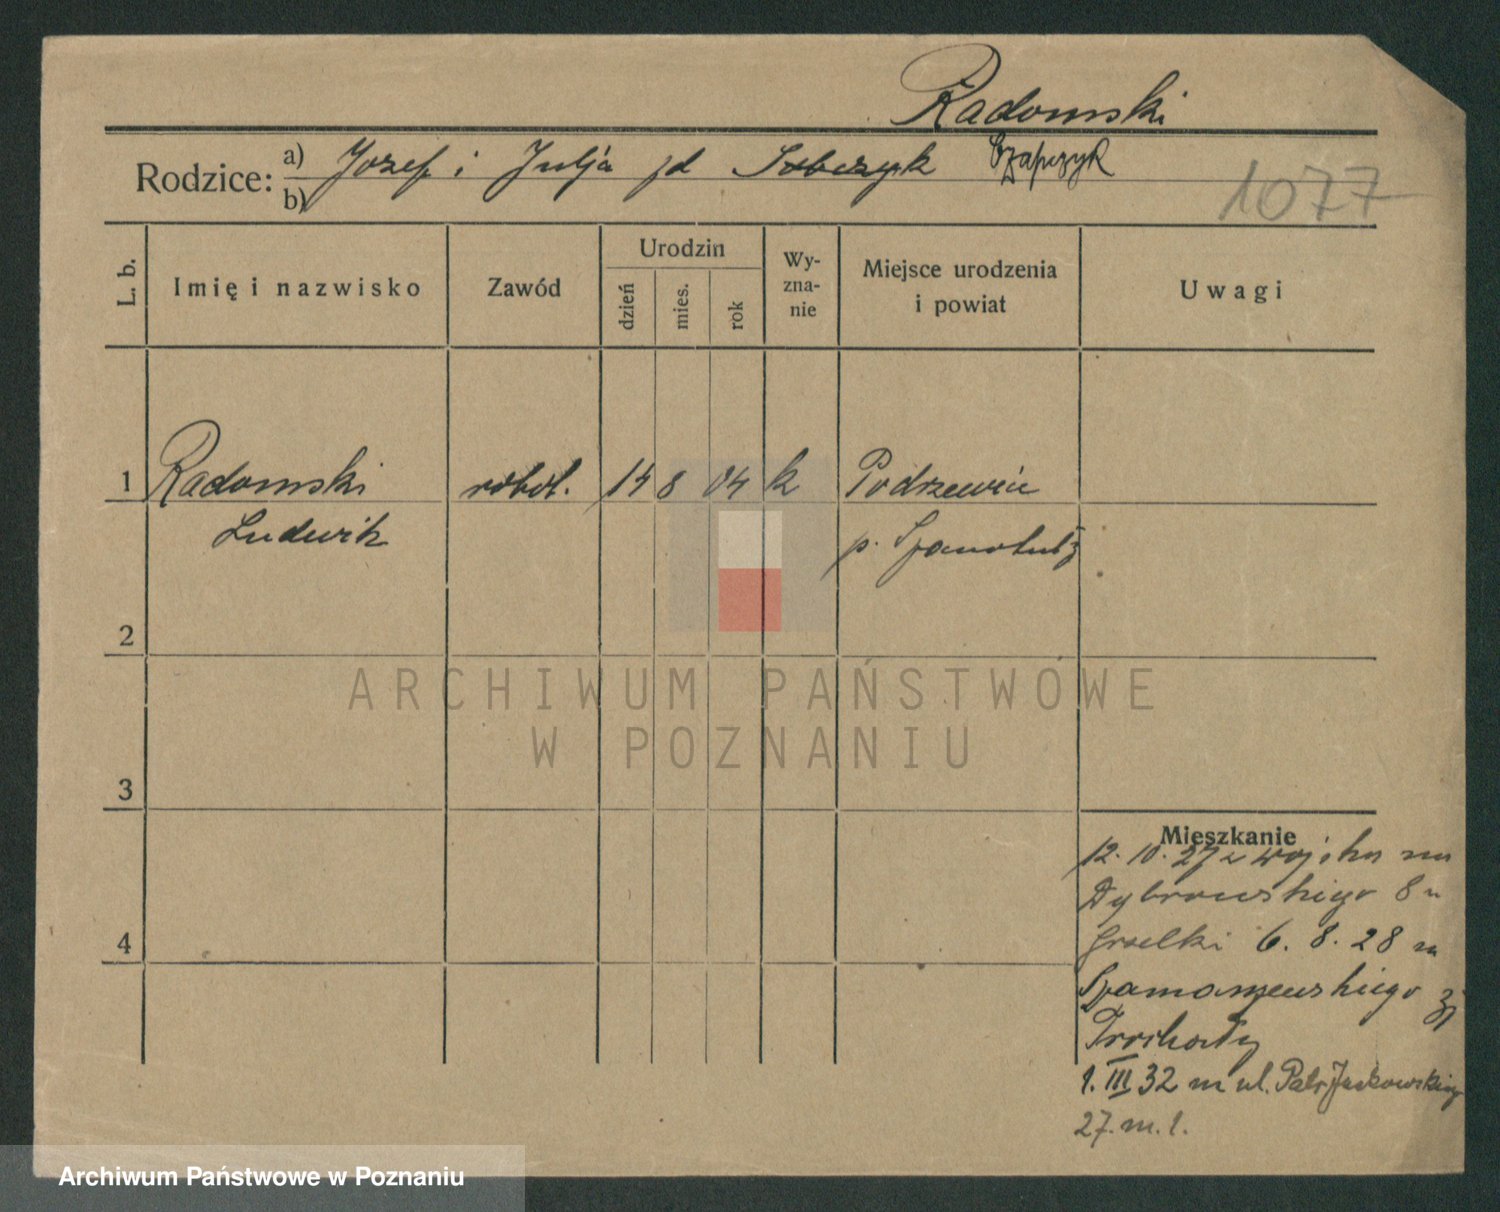 Radomski
Rodzice: a) Jozef i Julja jd Sobczyk Szapczyk
b)
1077
L. b. Imię i nazwisko Zawód Urodzin dzień mies. rok Wy-zna-nie Miejsce urodzenia i powiat Uwagi
1 Radomski robot. 14 8 04 k Podrzewie
Ludwik p. Szamotuły
2
ARCHIWUM PAŃSTWOWE
W POZNANIU
3
Mieszkanie
12. 10. 27 z wojska na
Dąbrowskiego 8 u
6. 8. 28 na
Szamarzewskiego
1. III 32 na ul. Patr Jackowskiego
27. m. 1.
4
Archiwum Państwowe w Poznaniu